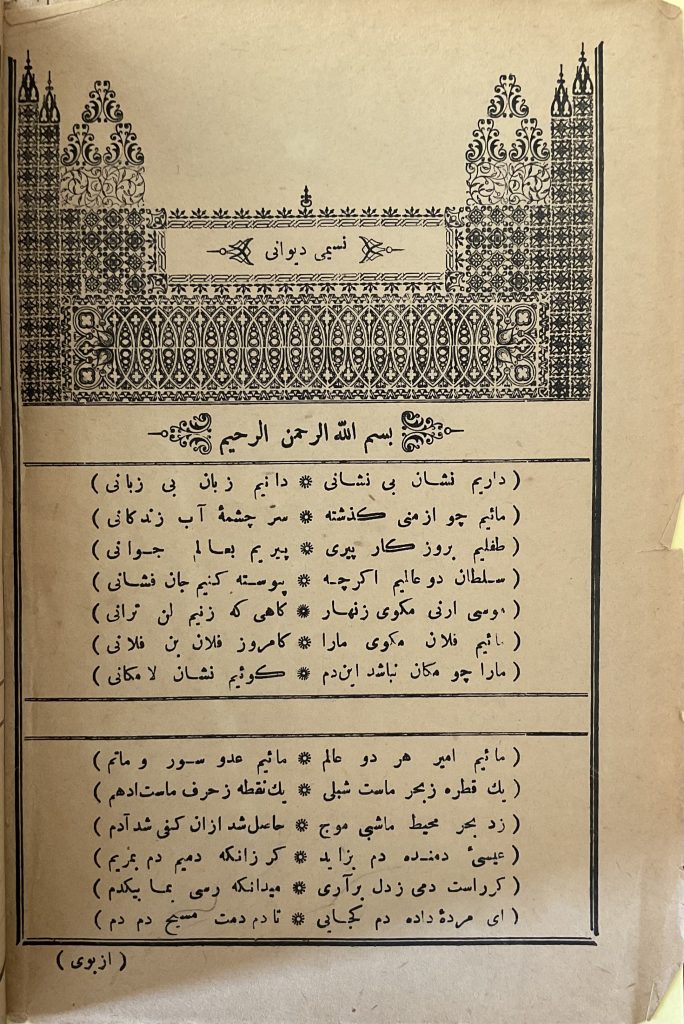 نسیمی دیوانی
بسم الله الرحمن الرحیم
( داریم نشان بی نشانی * دانیم زبان بی زبانی )
( مائیم چو ازمنی كذشته * سرّ چشمهٔ آب زندكانی )
( طفلیم بروز كار پیری * پیریم بعالم جوانی )
( سلطان دو عالیم اكرچه * پیوسته كنیم جان فشانی )
( موسی ارنی مكوی زنهار * كاهی كه زنیم لن ترانی )
( مائیم فلان مكوی مارا * كامروز فلان بن فلانی )
( مارا چو مكان نباشد این‌دم * كوئیم نشان لا مكانی )
( مائیم امیر هر دو عالم * مائیم عدو سور و ماتم )
( یك قطره زبحر ماست شبلی * یك‌نقطه زحرف ماست‌ادهم )
( زد بحر محیط ماشبی موج * حاصل‌شد ازان كفی شدآدم )
( عیسئ دمنده دم بزاید * كر زانكه دمیم دم بمریم )
( كرراست دمی زدل برآری * میدانكه رسی بما بیكدم )
( ای مردهٔ داده دم كجایی * تادم دمت مسیح دم دم )
( ازبوی )